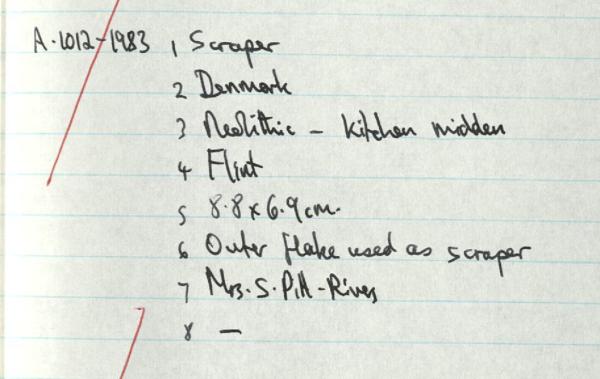 A.1012-1983 1 Scraper
2 Denmark
3 Neolithic - kitchen midden
4 Flint
5 8.8 x 6.9 cm.
6 Outer flake used as scraper
7 Mrs. S. Pitt-Rivers
8 —